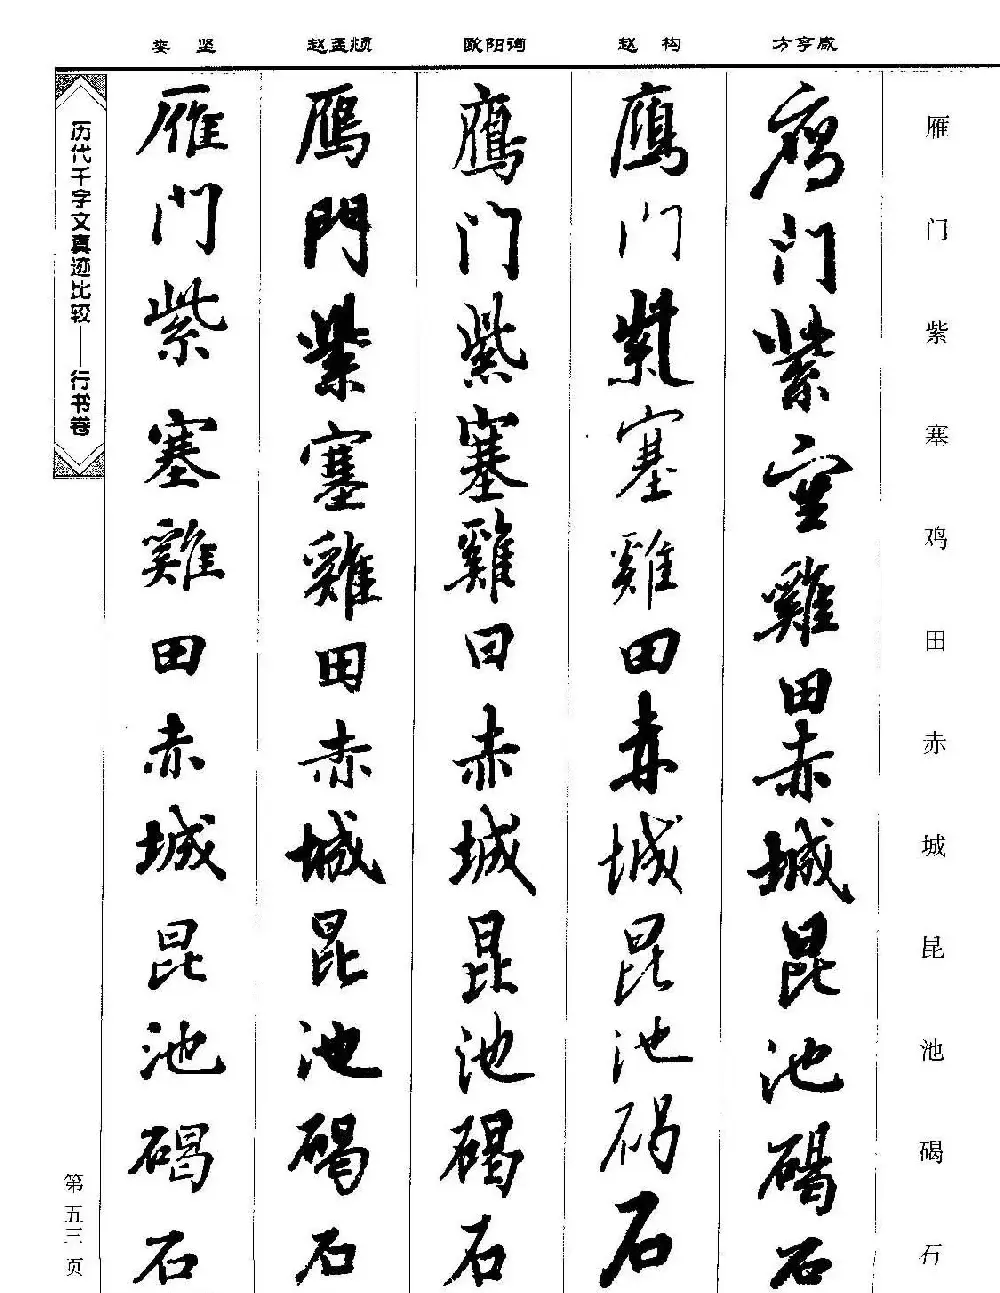 娄坚 赵孟頫 欧阳询 赵构 方孝咸
雁门紫塞鸡田赤城昆池碣石
鴈门紫塞雞田赤城昆池碣石
鴈门紫塞雞田赤城昆池碣石
鴈门紫塞雞田赤城昆池碣石
鴈門紫塞雞田赤城昆池碣石
雁门紫塞雞田赤城昆池碣石
历代千字文真迹比较——行书卷
第五三页